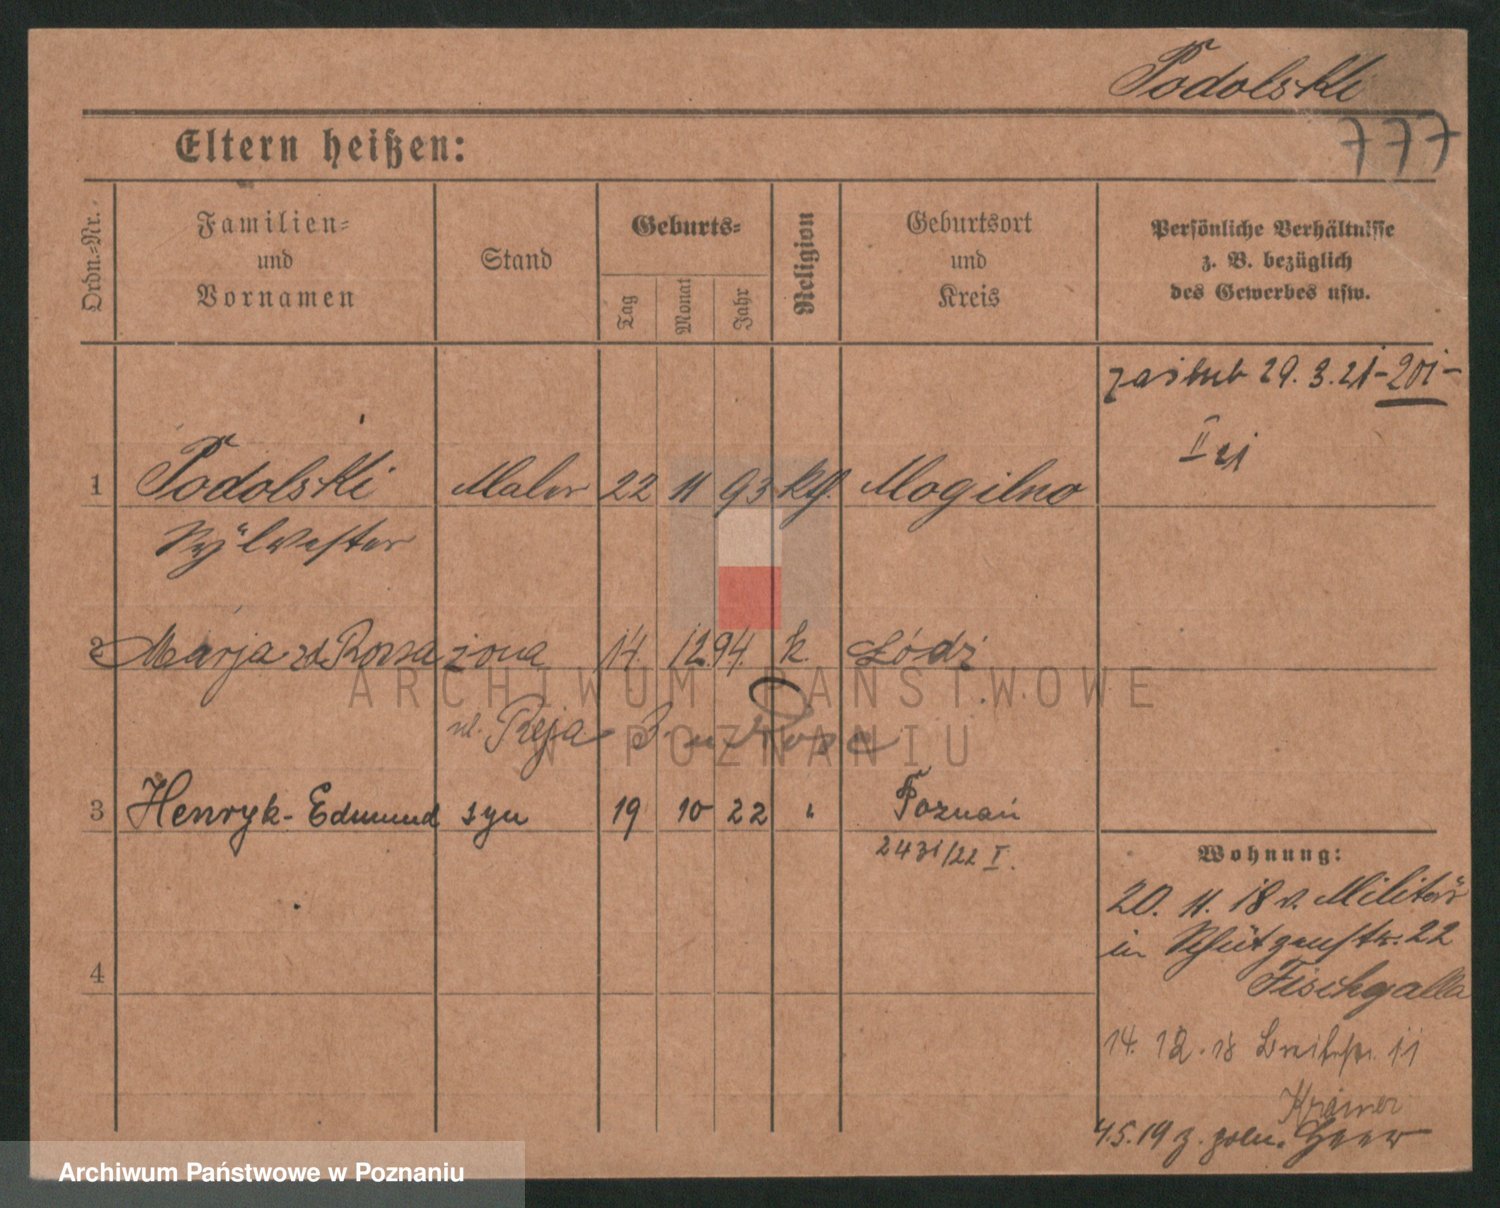 Podolski
777
Eltern heißen:
Ordn.-Nr.
Familien-
und
Vornamen
Stand
Geburts-
Tag
Monat
Jahr
Religion
Geburtsort
und
Kreis
Persönliche Verhältnisse
z. B. bezüglich
des Gewerbes usw.
zaślub 29.3.21 - 201 -
II
1 Podolski Maler 22 11 93 kth. Mogilno
Sylvester
2 Marja zd. Rossa żona 14. 12. 94. k. Łódź
Reja
3 Henryk-Edmund syn 19 10 22 " Poznań
2431/22 I.
4
Wohnung:
20. 11. 18 v. Militär
in Schützenstr. 22
Fischgalla
14. 12. 18 Breitestr. 11
Krämer
4.5.19 z. poln. Heer
ARCHIWUM PAŃSTWOWE
W POZNANIU
Archiwum Państwowe w Poznaniu